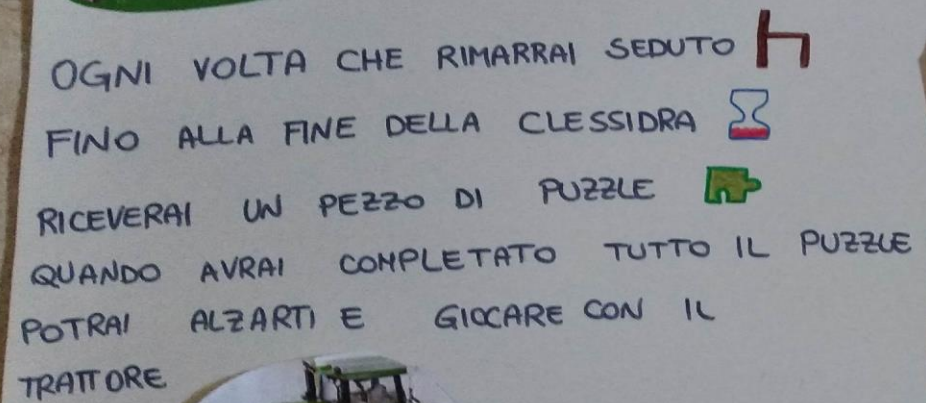 OGNI VOLTA CHE RIMARRAI SEDUTO
FINO ALLA FINE DELLA CLESSIDRA
RICEVERAI UN PEZZO DI PUZZLE
QUANDO AVRAI COMPLETATO TUTTO IL PUZZLE
POTRAI ALZARTI E GIOCARE CON IL
TRATTORE